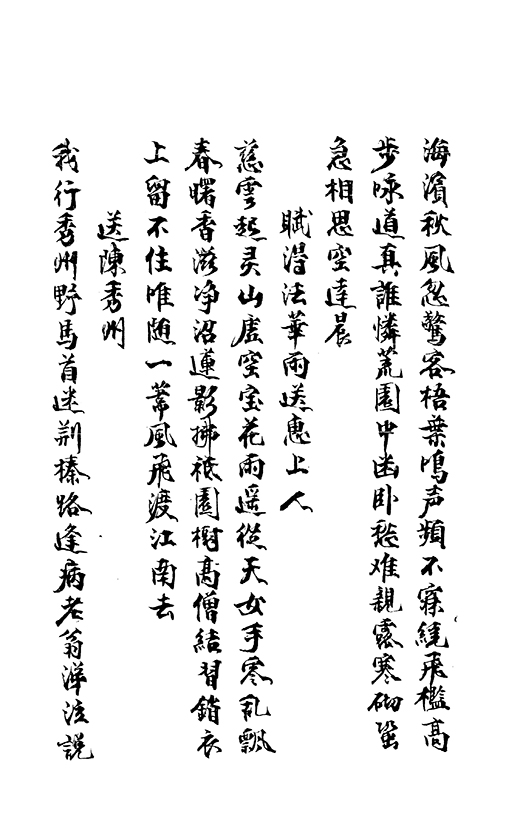 海濱秋風忽驚客梧葉鳴声頻不寐繞飛檻高
步咏道真誰憐荒園中幽卧愁难親露寒砌蛩
急相思空達晨
賦得法華雨送惠上人
慈雲起灵山虛空宝花雨遥從天女手寒乱飄
春曙香滋净沼蓮影拂祇園樹高僧結習銷衣
上留不住唯随一葦風飛渡江南去
送陳秀州
我行秀州野馬首迷荆榛路逢病老翁洋泣説